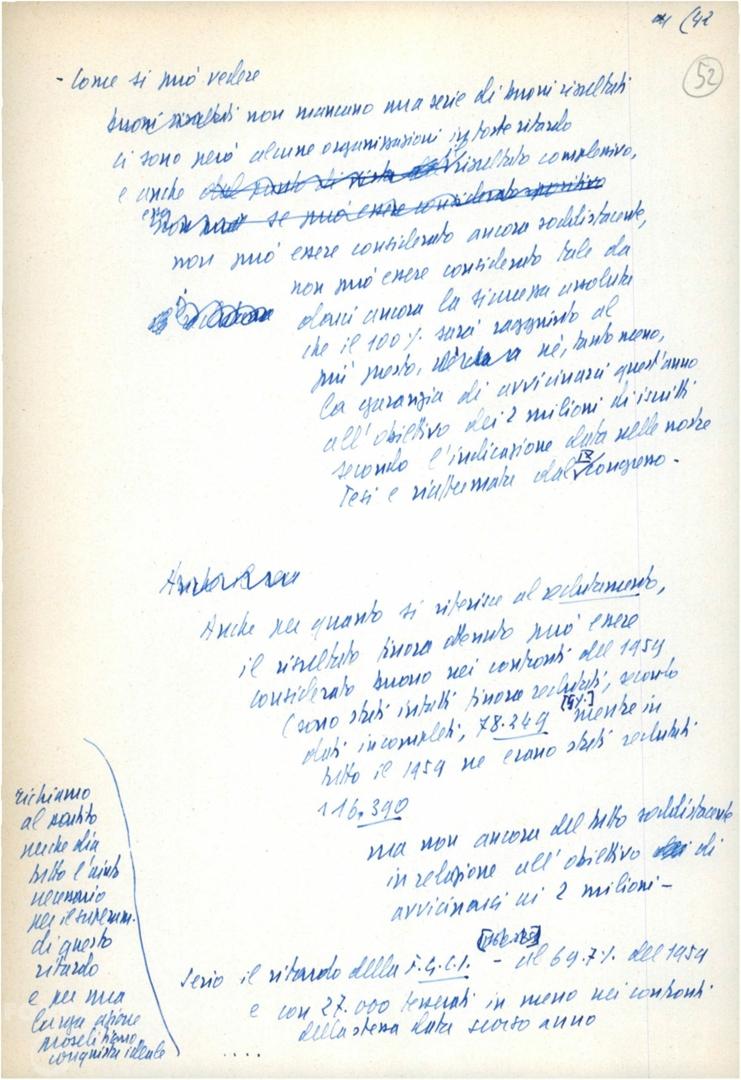 (42
52
- Come si può vedere
buoni risultati non mancano una serie di buoni risultati
ci sono però alcune organizzazioni in forte ritardo
e anche del punto di vista del il risultato complessivo,
non se può essere considerato positivo
non può essere considerato ancora soddisfacente,
non può essere considerato tale da
darci ancora la sicurezza assoluta
che il 100% sarà raggiunto al
più presto, né, tanto meno,
la garanzia di avvicinarci quest'anno
all'obiettivo dei 2 milioni di iscritti
secondo l'indicazione data nelle nostre
Tesi e riaffermata dal IX Congresso -
Anche per quanto si riferisce al reclutamento,
il risultato finora ottenuto può essere
considerato buono nei confronti del 1959
(sono stati infatti finora reclutati, secondo
dati incompleti, 78.249 mentre in
tutto il 1959 ne erano stati reclutati
116.390
ma non ancora del tutto soddisfacente
in relazione all'obiettivo di
avvicinarci ai 2 milioni -
Serio il ritardo della F.G.C.I. - al 69.7% del 1959
e con 27.000 tesserati in meno nei confronti
della stessa data scorso anno
....
richiamo
al partito
perché dia
tutto l'aiuto
necessario
per il superam.
di questo
ritardo
e per una
larga azione
proselitismo
conquista ideale